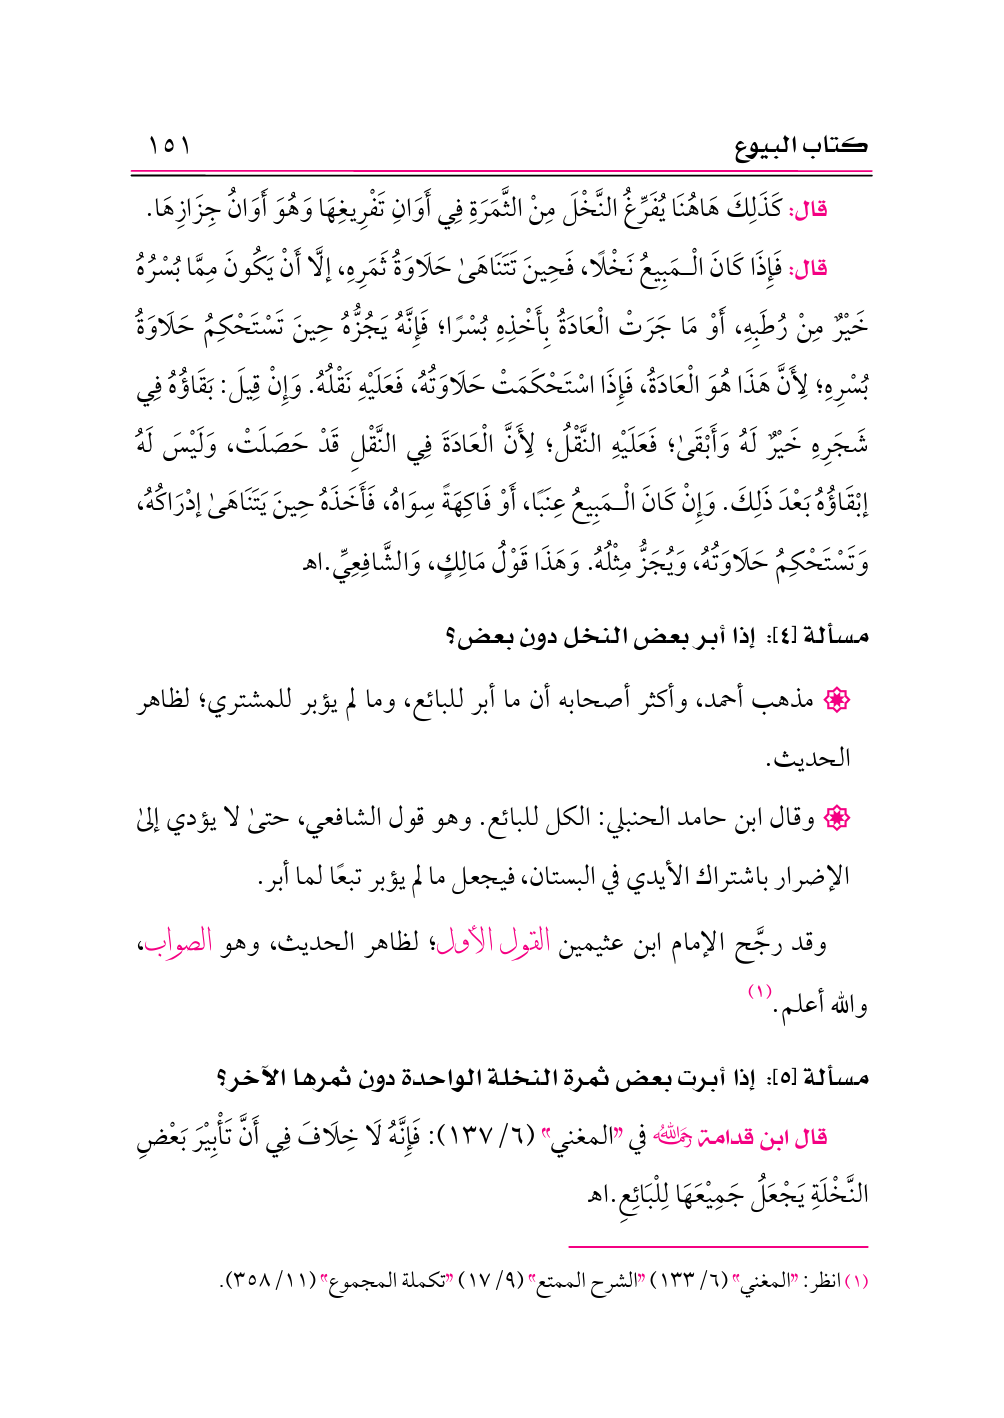 كتاب البيوع ١٥١
قال: كَذَلِكَ هَاهُنَا يُفَرِّغُ النَّخْلَ مِنْ الثَّمَرَةِ فِي أَوَانِ تَفْرِيغِهَا وَهُوَ أَوَانُ جِزَازِهَا.
قال: فَإِذَا كَانَ الْـمَبِيعُ نَخْلًا، فَحِينَ تَتَنَاهَىٰ حَلَاوَةُ ثَمَرِهِ، إلَّا أَنْ يَكُونَ مِمَّا بُسْرُهُ
خَيْرٌ مِنْ رُطَبِهِ، أَوْ مَا جَرَتْ الْعَادَةُ بِأَخْذِهِ بُسْرًا؛ فَإِنَّهُ يَجُزُّهُ حِينَ تَسْتَحْكِمُ حَلَاوَةُ
بُسْرِهِ؛ لِأَنَّ هَذَا هُوَ الْعَادَةُ، فَإِذَا اسْتَحْكَمَتْ حَلَاوَتُهُ، فَعَلَيْهِ نَقْلُهُ. وَإِنْ قِيلَ: بَقَاؤُهُ فِي
شَجَرِهِ خَيْرٌ لَهُ وَأَبْقَىٰ؛ فَعَلَيْهِ النَّقْلُ؛ لِأَنَّ الْعَادَةَ فِي النَّقْلِ قَدْ حَصَلَتْ، وَلَيْسَ لَهُ
إبْقَاؤُهُ بَعْدَ ذَلِكَ. وَإِنْ كَانَ الْـمَبِيعُ عِنَبًا، أَوْ فَاكِهَةً سِوَاهُ، فَأَخَذَهُ حِينَ يَتَنَاهَىٰ إدْرَاكُهُ،
وَتَسْتَحْكِمُ حَلَاوَتُهُ، وَيُجَزُّ مِثْلُهُ. وَهَذَا قَوْلُ مَالِكٍ، وَالشَّافِعِيِّ.اهـ
مسألة [٤]: إذا أبر بعض النخل دون بعض؟
مذهب أحمد، وأكثر أصحابه أن ما أبر للبائع، وما لم يؤبر للمشتري؛ لظاهر
الحديث.
وقال ابن حامد الحنبلي: الكل للبائع. وهو قول الشافعي، حتىٰ لا يؤدي إلىٰ
الإضرار باشتراك الأيدي في البستان، فيجعل ما لم يؤبر تبعًا لما أبر.
وقد رجَّح الإمام ابن عثيمين القول الأول؛ لظاهر الحديث، وهو الصواب،
والله أعلم.(١)
مسألة [٥]: إذا أبرت بعض ثمرة النخلة الواحدة دون ثمرها الآخر؟
قال ابن قدامة رحمه الله في "المغني" (٦/ ١٣٧): فَإِنَّهُ لَا خِلَافَ فِي أَنَّ تَأْبِيْرَ بَعْضِ
النَّخْلَةِ يَجْعَلُ جَمِيْعَهَا لِلْبَائِعِ.اهـ
(١) انظر: "المغني" (٦/ ١٣٣) "الشرح الممتع" (٩/ ١٧) "تكملة المجموع" (١١/ ٣٥٨).